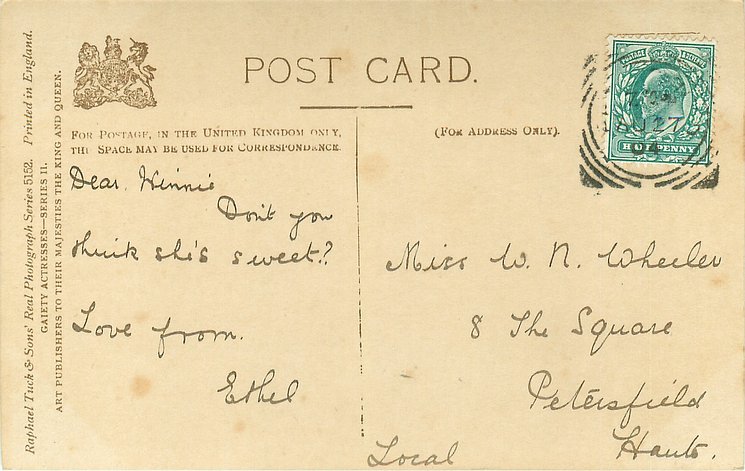 POST CARD.
FOR POSTAGE, IN THE UNITED KINGDOM ONLY,
THIS SPACE MAY BE USED FOR CORRESPONDENCE.
(FOR ADDRESS ONLY).
Dear Winnie
Don't you
think she's sweet?
Love from.
Ethel
Miss W. N. Wheeler
8 The Square
Petersfield
Hants.
Local
Raphael Tuck & Sons' Real Photograph Series 5152. Printed in England.
GAIETY ACTRESSES—SERIES II.
ART PUBLISHERS TO THEIR MAJESTIES THE KING AND QUEEN.
POSTAGE
HALFPENNY
27